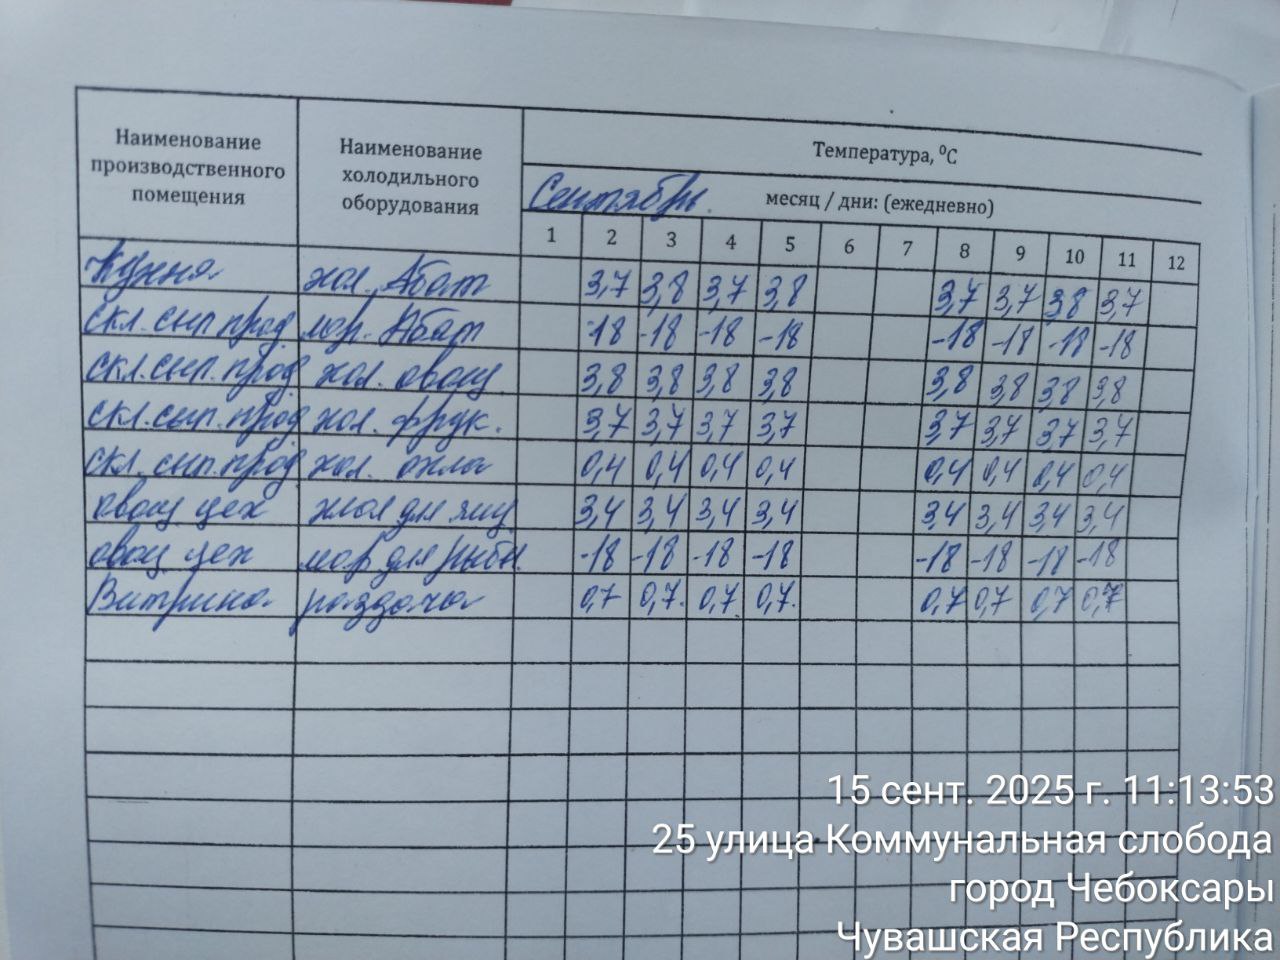 Наименование производственного помещения
Наименование холодильного оборудования
Температура, ⁰С
Сентябрь. месяц / дни: (ежедневно)
1 2 3 4 5 6 7 8 9 10 11 12
Кухня хол. Абат 3,7 3,8 3,7 3,8 3,7 3,7 3,8 3,7
скл. сып прод мор. Абат -18 -18 -18 -18 -18 -18 -18 -18
скл. сып. прод хол. овощ 3,8 3,8 3,8 3,8 3,8 3,8 3,8 3,8
скл. сып. прод хол. фрук. 3,7 3,7 3,7 3,7 3,7 3,7 3,7 3,7
скл. сып. прод хол. 0,4 0,4 0,4 0,4 0,4 0,4 0,4 0,4
овощ цех для яиц 3,4 3,4 3,4 3,4 3,4 3,4 3,4 3,4
овощ цех мор для рыбы -18 -18 -18 -18 -18 -18 -18 -18
Витрина раздача 0,7 0,7 0,7 0,7 0,7 0,7 0,7 0,7
15 сент. 2025 г. 11:13:53
25 улица Коммунальная слобода
город Чебоксары
Чувашская Республика